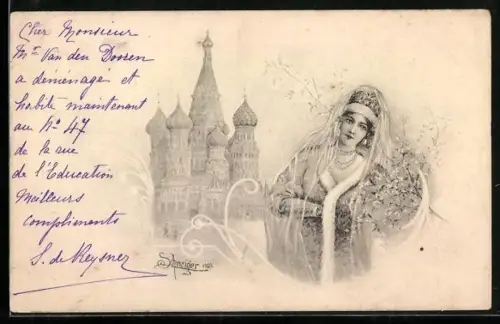 Cher Monsieur
Mr Van den Dossen
a déménagé et
habite maintenant
au No 47
de la rue
de l'Education
Meilleurs
compliments
S. de Keysner